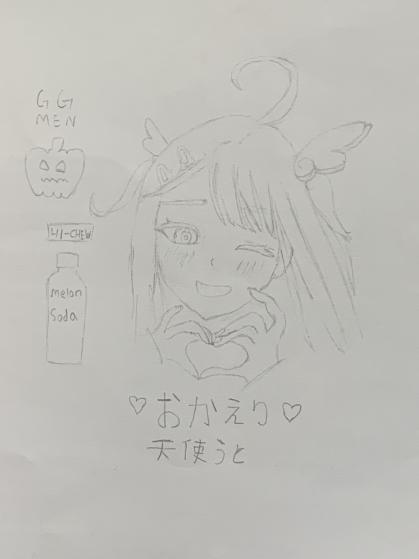 GG
MEN
HI-CHEW
Melon
Soda
♡おかえり♡
天使うと